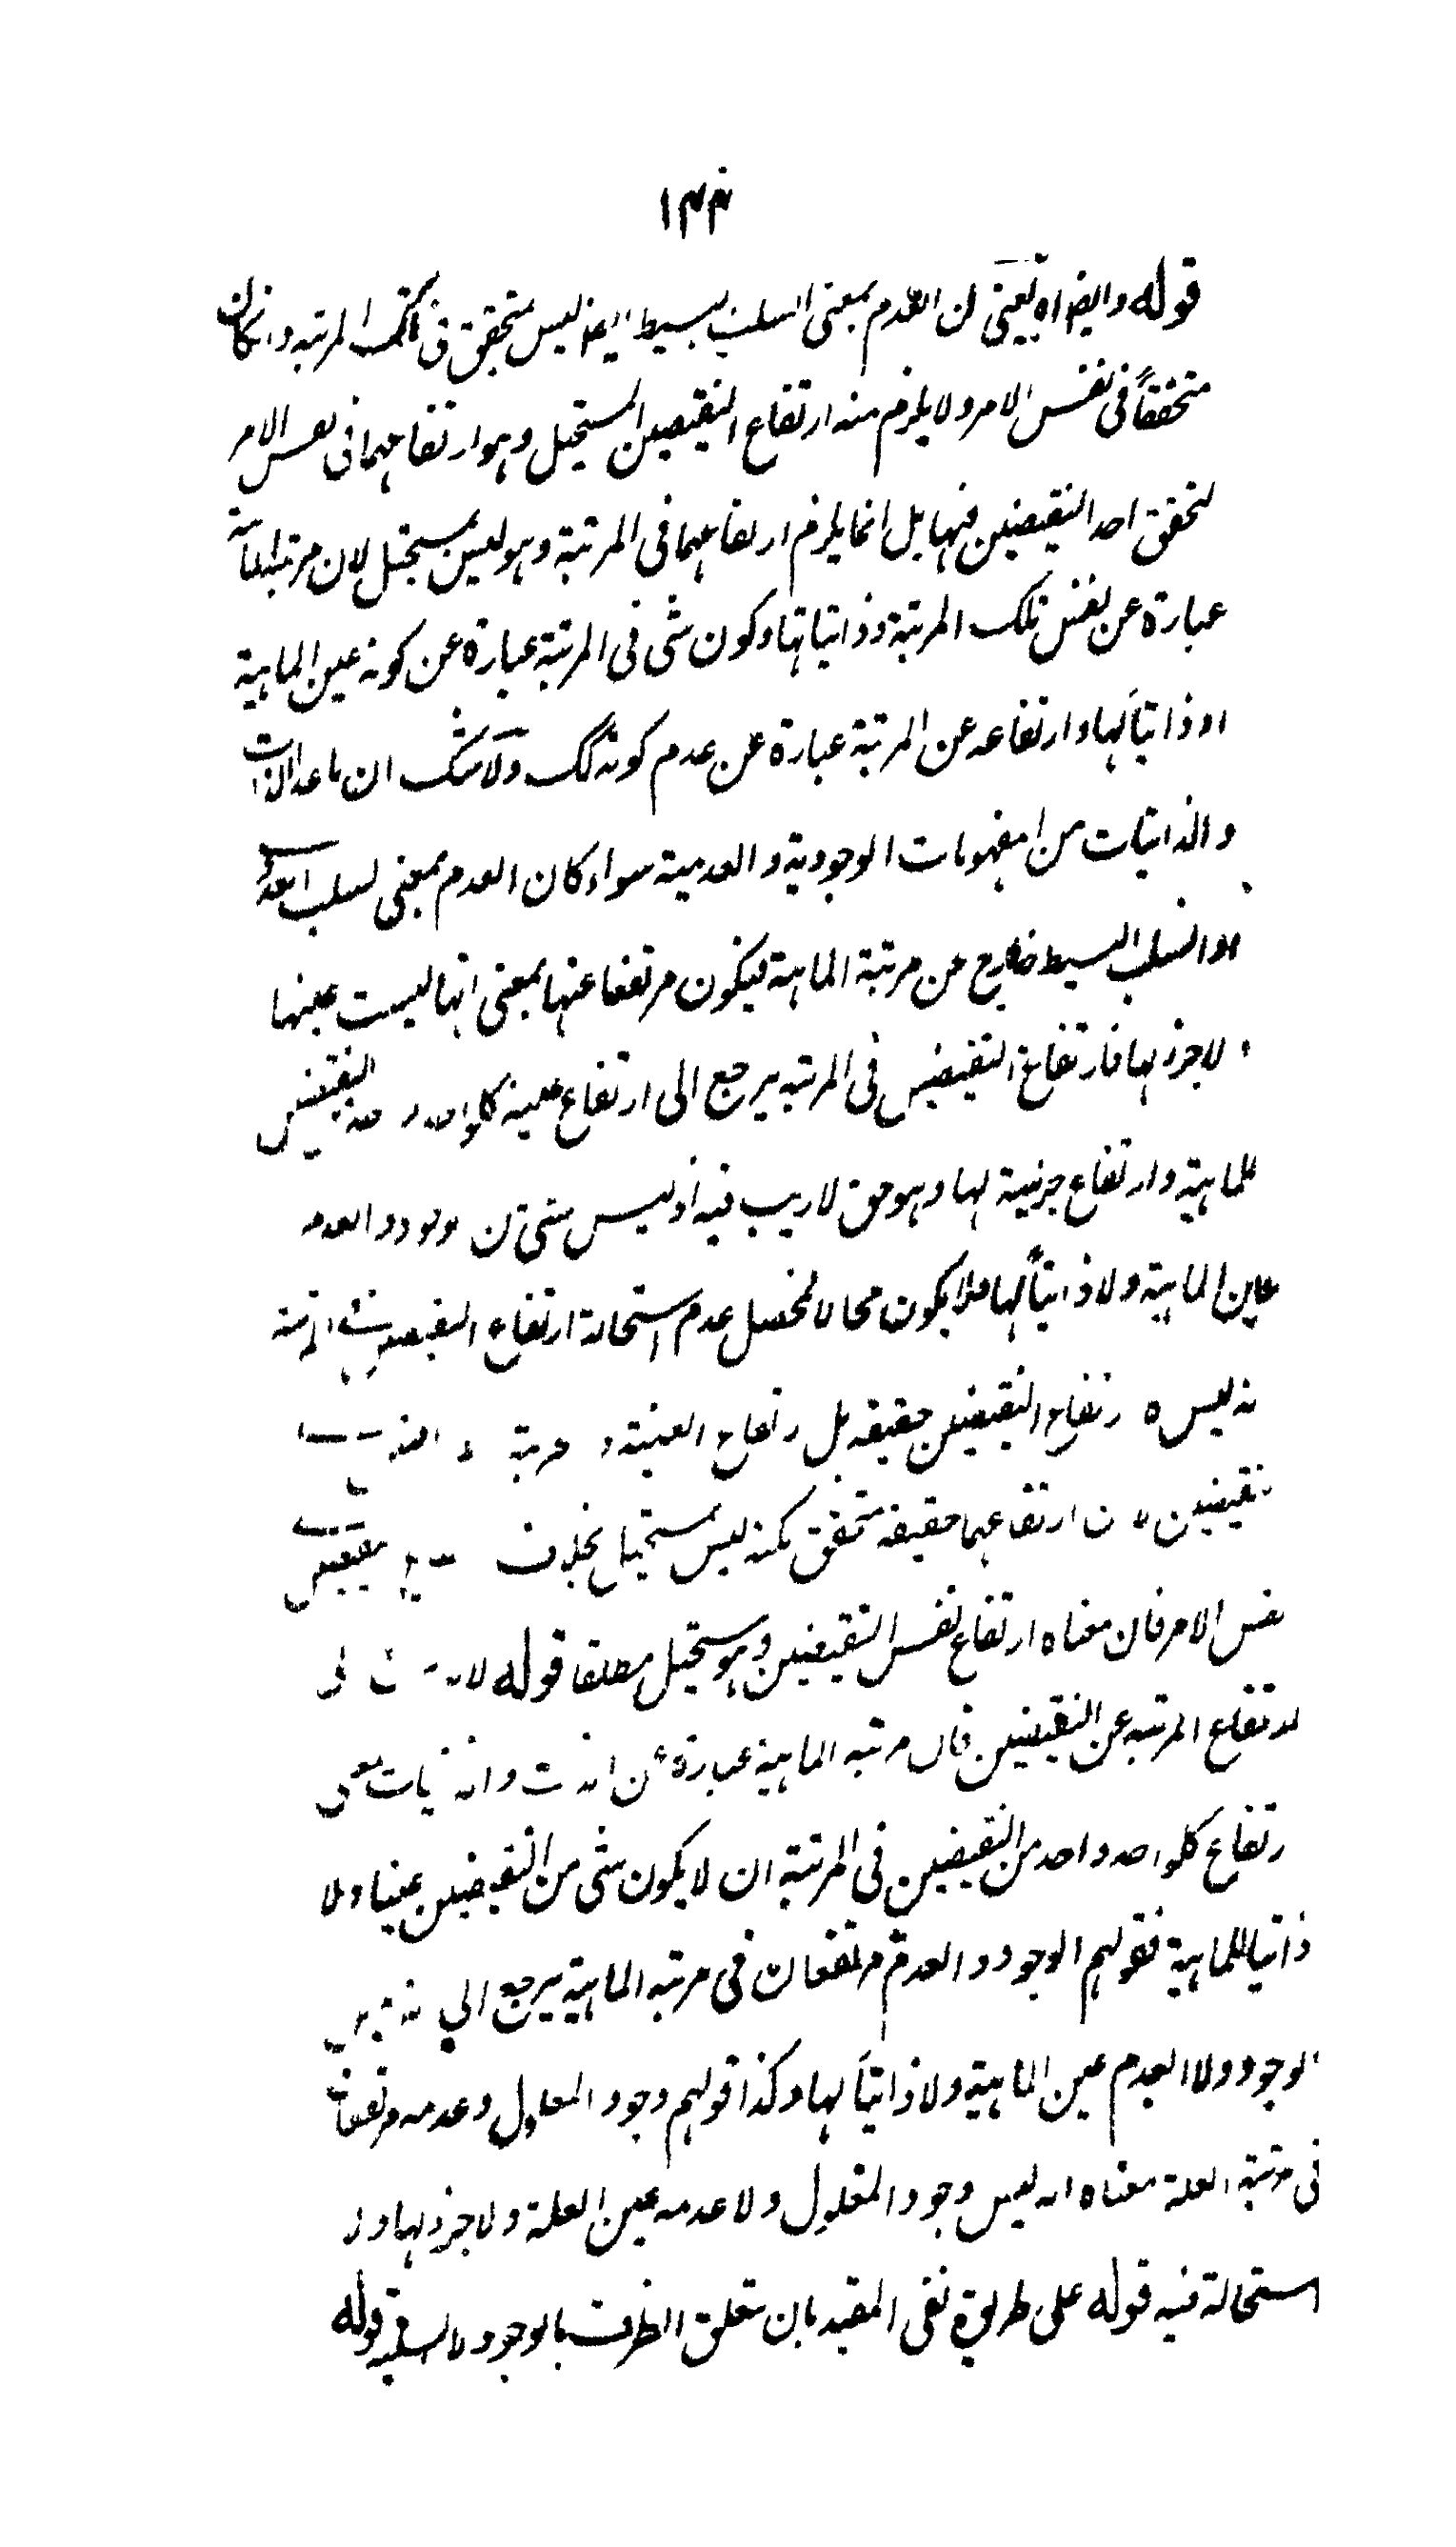 ١٤٤
قوله وايضا اه يعنى ان العدم بمعنى السلب البسيط ايضا ليس بمتحقق فى تلك المرتبه وانكان
متحققاً فى نفس الامر ولا يلزم منه ارتفاع النقيضين المستحيل وهو ارتفاعهما فى نفس الامر
لتحقق احد النقيضين فيها بل انما يلزم ارتفاعهما فى المرتبة وهو ليس بمستحيل لان مرتبة الماهية
عبارة عن نفس تلك المرتبة وذاتياتها وكون شى فى المرتبة عبارة عن كونه عين الماهية
او ذاتياً لها وارتفاعه عن المرتبة عبارة عن عدم كونه كك ولا شك ان ما عدا الذات
والذاتيات من المفهومات الوجودية والعدمية سواء كان العدم بمعنى السلب العدولى
او السلب البسيط خارج عن مرتبة الماهية فيكون مرتفعا عنها بمعنى انها ليست عينها
ولا جزؤ لها فارتفاع النقيضين فى المرتبه يرجع الى ارتفاع عينية كلواحد النقيضين
للماهية وارتفاع جزئية لها وهو حق لا ريب فيه اذ ليس شى من الوجود والعدم
عين الماهية ولا ذاتياً لها فلا يكون محالا فحصل عدم استحالة ارتفاع النقيضين فى المرتبة
انه ليس ارتفاع النقيضين حقيقه بل ارتفاع العينية
النقيضين ارتفاعهما حقيقه متحقق لكنه ليس بمستحيل بخلاف النقيضين
نفس الامر فان معناه ارتفاع نفس النقيضين وهو مستحيل مطلقا قوله فى
ارتفاع المرتبه عن النقيضين فان مرتبه الماهية عبارة عن الذات والذاتيات معنى
ارتفاع كلواحد واحد من النقيضين فى المرتبة ان لا يكون شى من النقيضين عينا ولا
ذاتيا للماهية فقولهم الوجود والعدم مرتفعان فى مرتبه الماهية يرجع الى انه ليس
الوجود ولا العدم عين الماهية ولا ذاتياً لها وكذا قولهم وجود المعلول وعدمه مرتفعان
فى مرتبة العلة معناه انه ليس وجود المعلول ولا عدمه عين العلة ولا جزؤ لها ولا
استحالة فيه قوله على طريق نفى المقيد بان يتعلق الظرف بالوجود لا السلب قوله